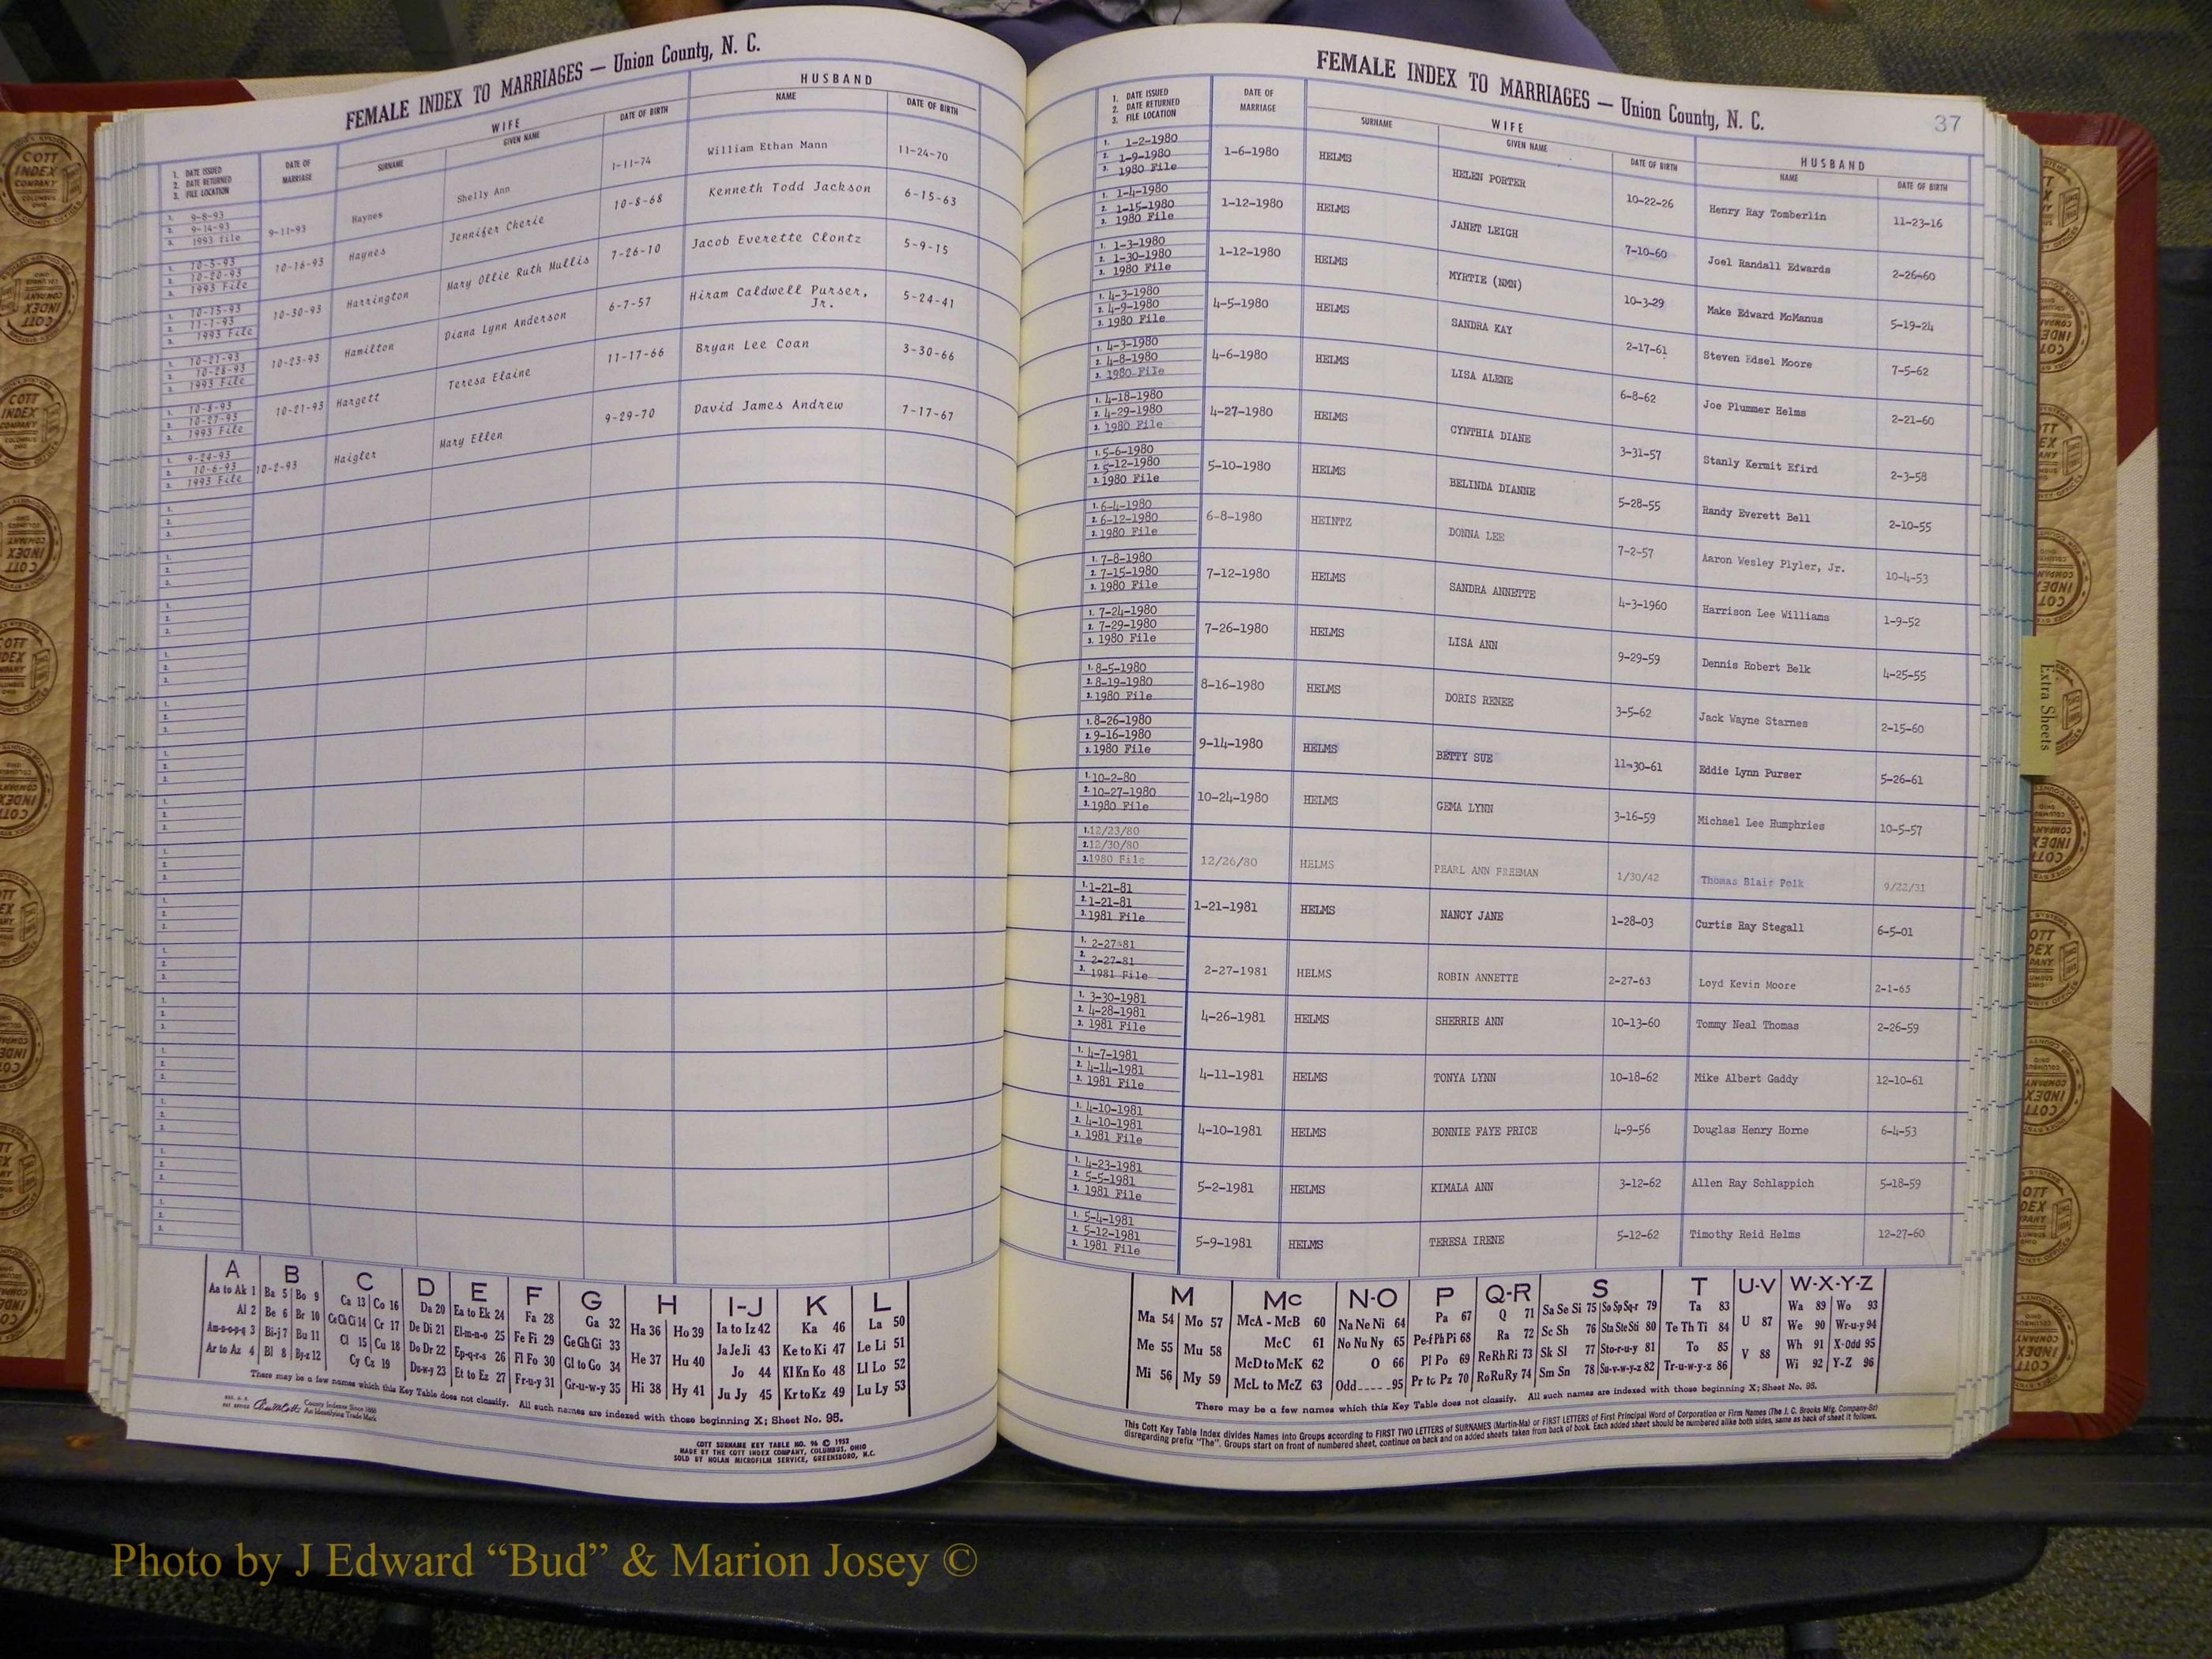 FEMALE INDEX TO MARRIAGES — Union County, N. C.
1. DATE ISSUED
2. DATE RETURNED
3. FILE LOCATION
DATE OF MARRIAGE
WIFE
SURNAME
GIVEN NAME
DATE OF BIRTH
HUSBAND
NAME
DATE OF BIRTH
1. 9-8-93
2. 9-14-93
3. 1993 File
9-11-93 Haynes Shelly Ann 1-11-74 William Ethan Mann 11-24-70
1. 10-5-93
2. 10-20-93
3. 1993 File
10-16-93 Haynes Jennifer Cherie 10-8-68 Kenneth Todd Jackson 6-15-63
1. 10-15-93
2. 11-1-93
3. 1993 File
10-30-93 Harrington Mary Ollie Ruth Mullis 7-26-10 Jacob Everette Clontz 5-9-15
1. 10-21-93
2. 10-28-93
3. 1993 File
10-23-93 Hamilton Diana Lynn Anderson 6-7-57 Hiram Caldwell Purser, Jr. 5-24-41
1. 10-8-93
2. 10-27-93
3. 1993 File
10-21-93 Hargett Teresa Elaine 11-17-66 Bryan Lee Coan 3-30-66
1. 9-24-93
2. 10-6-93
3. 1993 File
10-2-93 Haigler Mary Ellen 9-29-70 David James Andrew 7-17-67
A B C D E F G H I-J K L
Aa to Ak 1 Ba 5 Bo 9 Ca 13 Co 16 Da 20 Ea to Ek 24 Fa 28 Ga 32 Ha 36 Ho 39 Ia to Iz 42 Ka 46 La 50
Al 2 Be 6 Br 10 Ce Ch Ci 14 Cr 17 De Di 21 El-m-n-o 25 Fe Fi 29 Ge Gh Gi 33 He 37 Hu 40 Ja Je Ji 43 Ke to Ki 47 Le Li 51
Am-n-o-p-q 3 Bi-j 7 Bu 11 Cl 15 Cu 18 Do Dr 22 Ep-q-r-s 26 Fl Fo 30 Gl to Go 34 Hi 38 Hy 41 Jo 44 Kl Kn Ko 48 Ll Lo 52
Ar to Az 4 Bl 8 By-z 12 Cy Cz 19 Du-w-y 23 Et to Ez 27 Fr-u-y 31 Gr-u-w-y 35 Ju Jy 45 Kr to Kz 49 Lu Ly 53
There may be a few names which this Key Table does not classify. All such names are indexed with those beginning X; Sheet No. 95.
County Indexes Since 1888
An Identifying Trade Mark
COTT SURNAME KEY TABLE NO. 96 © 1952
MADE BY THE COTT INDEX COMPANY, COLUMBUS, OHIO
SOLD BY NOLAN MICROFILM SERVICE, GREENSBORO, N.C.
FEMALE INDEX TO MARRIAGES — Union County, N. C.
37
1. DATE ISSUED
2. DATE RETURNED
3. FILE LOCATION
DATE OF MARRIAGE
WIFE
SURNAME
GIVEN NAME
DATE OF BIRTH
HUSBAND
NAME
DATE OF BIRTH
1. 1-2-1980
2. 1-9-1980
3. 1980 File
1-6-1980 HELMS HELEN PORTER 10-22-26 Henry Ray Tomberlin 11-23-16
1. 1-4-1980
2. 1-15-1980
3. 1980 File
1-12-1980 HELMS JANET LEIGH 7-10-60 Joel Randall Edwards 2-26-60
1. 1-3-1980
2. 1-30-1980
3. 1980 File
1-12-1980 HELMS MYRTIE (NMN) 10-3-29 Make Edward McManus 5-19-24
1. 4-3-1980
2. 4-9-1980
3. 1980 File
4-5-1980 HELMS SANDRA KAY 2-17-61 Steven Edsel Moore 7-5-62
1. 4-3-1980
2. 4-8-1980
3. 1980 File
4-6-1980 HELMS LISA ALENE 6-8-62 Joe Plummer Helms 2-21-60
1. 4-18-1980
2. 4-29-1980
3. 1980 File
4-27-1980 HELMS CYNTHIA DIANE 3-31-57 Stanly Kermit Efird 2-3-58
1. 5-6-1980
2. 5-12-1980
3. 1980 File
5-10-1980 HELMS BELINDA DIANNE 5-28-55 Randy Everett Bell 2-10-55
1. 6-4-1980
2. 6-12-1980
3. 1980 File
6-8-1980 HEINTZ DONNA LEE 7-2-57 Aaron Wesley Plyler, Jr. 10-4-53
1. 7-8-1980
2. 7-15-1980
3. 1980 File
7-12-1980 HELMS SANDRA ANNETTE 4-3-1960 Harrison Lee Williams 1-9-52
1. 7-24-1980
2. 7-29-1980
3. 1980 File
7-26-1980 HELMS LISA ANN 9-29-59 Dennis Robert Belk 4-25-55
1. 8-5-1980
2. 8-19-1980
3. 1980 File
8-16-1980 HELMS DORIS RENEE 3-5-62 Jack Wayne Starnes 2-15-60
1. 8-26-1980
2. 9-16-1980
3. 1980 File
9-14-1980 HELMS BETTY SUE 11-30-61 Eddie Lynn Purser 5-26-61
1. 10-2-80
2. 10-27-1980
3. 1980 File
10-24-1980 HELMS GEMA LYNN 3-16-59 Michael Lee Humphries 10-5-57
1. 12/23/80
2. 12/30/80
3. 1980 File
12/26/80 HELMS PEARL ANN FREEMAN 1/30/42 Thomas Blair Polk 9/22/31
1. 1-21-81
2. 1-21-81
3. 1981 File
1-21-1981 HELMS NANCY JANE 1-28-03 Curtis Ray Stegall 6-5-01
1. 2-27-81
2. 2-27-81
3. 1981 File
2-27-1981 HELMS ROBIN ANNETTE 2-27-63 Loyd Kevin Moore 2-1-65
1. 3-30-1981
2. 4-28-1981
3. 1981 File
4-26-1981 HELMS SHERRIE ANN 10-13-60 Tommy Neal Thomas 2-26-59
1. 4-7-1981
2. 4-14-1981
3. 1981 File
4-11-1981 HELMS TONYA LYNN 10-18-62 Mike Albert Gaddy 12-10-61
1. 4-10-1981
2. 4-10-1981
3. 1981 File
4-10-1981 HELMS BONNIE FAYE PRICE 4-9-56 Douglas Henry Horne 6-4-53
1. 4-23-1981
2. 5-5-1981
3. 1981 File
5-2-1981 HELMS KIMALA ANN 3-12-62 Allen Ray Schlappich 5-18-59
1. 5-4-1981
2. 5-12-1981
3. 1981 File
5-9-1981 HELMS TERESA IRENE 5-12-62 Timothy Reid Helms 12-27-60
M Mc N-O P Q-R S T U-V W-X-Y-Z
Ma 54 Mo 57 McA - McB 60 Na Ne Ni 64 Pa 67 Q 71 Sa Se Si 75 So Sp Sq-r 79 Ta 83 U 87 Wa 89 Wo 93
Me 55 Mu 58 McC 61 No Nu Ny 65 Pe-f Ph Pi 68 Ra 72 Sc Sh 76 Sta Ste Sti 80 Te Th Ti 84 V 88 We 90 Wr-u-y 94
Mi 56 My 59 McD to McK 62 O 66 Pl Po 69 Re Rh Ri 73 Sk Sl 77 Sto-r-u-y 81 To 85 Wh 91 X-Odd 95
McL to McZ 63 Odd_____95 Pr to Pz 70 Ro Ru Ry 74 Sm Sn 78 Su-v-w-y-z 82 Tr-u-w-y-z 86 Wi 92 Y-Z 96
There may be a few names which this Key Table does not classify. All such names are indexed with those beginning X; Sheet No. 95.
This Cott Key Table Index divides Names into Groups according to FIRST TWO LETTERS of SURNAMES (Martin-Ma) or FIRST LETTERS of First Principal Word of Corporation or Firm Names (The J. C. Brooks Mfg. Company-Br)
disregarding prefix "The". Groups start on front of numbered sheet, continue on back and on added sheets taken from back of book. Each added sheet should be numbered alike both sides, same as back of sheet it follows.
Extra Sheets
COTT INDEX COMPANY COLUMBUS OHIO
Photo by J Edward “Bud” & Marion Josey ©